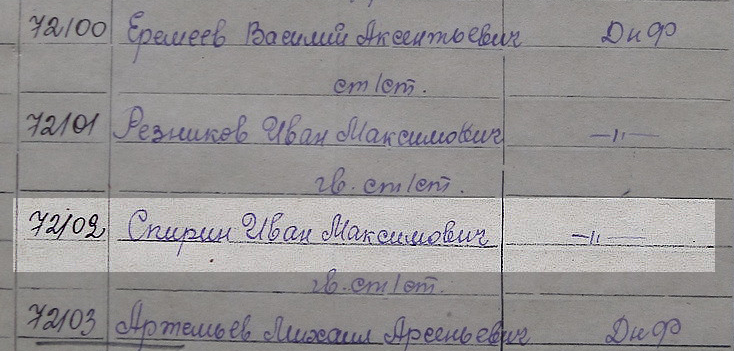 72100 Еремеев Василий Аксентьевич ДиФ
ст/ст.
72101 Резников Иван Максимович —〃—
гв. ст/ст.
72102 Спирин Иван Максимович —〃—
гв. ст/ст.
72103 Артемьев Михаил Арсеньевич ДиФ